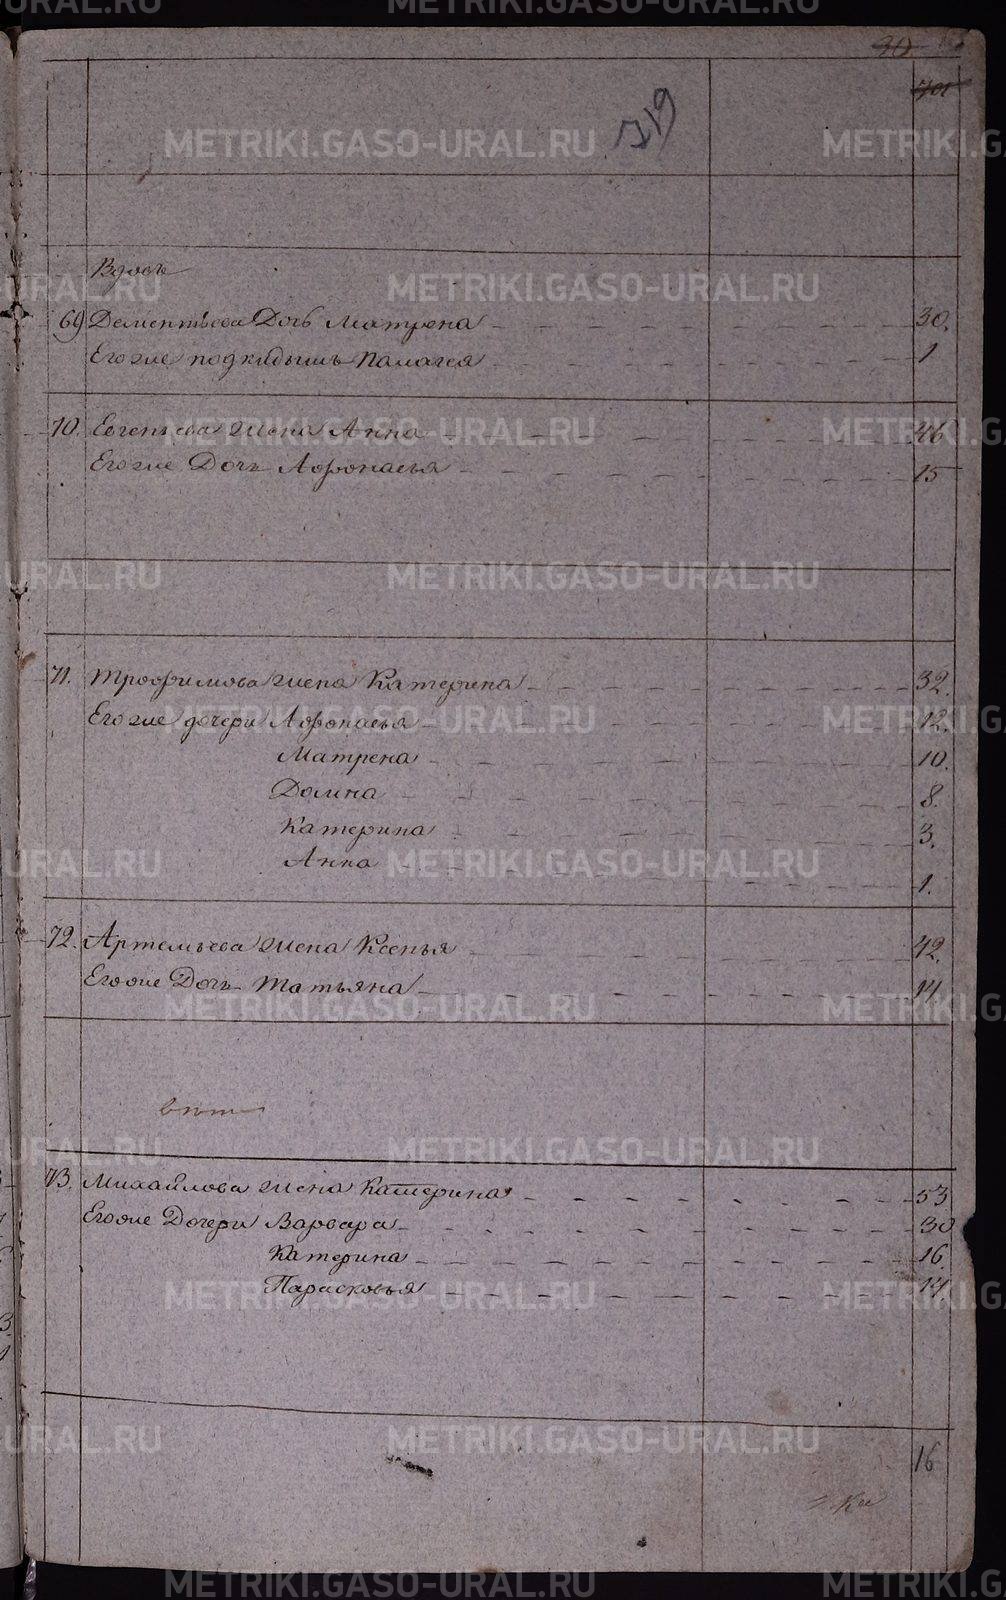 30
701
719
Вдовъ
69 Дементьева Дочь Матрена 30.
Егоже подкидышъ Палагея 1
70. Евгеньева жена Анна 46
Егоже Дочь Афонасья 15
71. Трофимова жена Катерина 32.
Егоже дочери Афонасья 12.
Матрена 10.
Домна 8.
Катерина 3.
Анна 1.
72. Артемьева жена Ксенья 42.
Егоже Дочь Татьяна 14.
73. Михайлова жена Катерина 53
Егоже Дочери Варвара 30
Катерина 16.
Парасковья 14.
16
METRIKI.GASO-URAL.RU